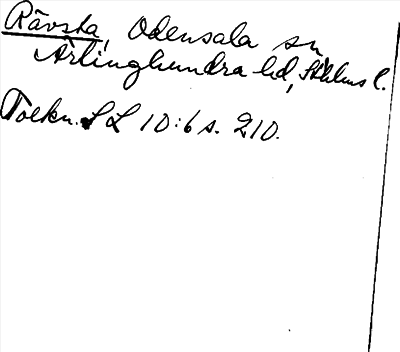 Rävsta, Odensala sn,
Ärlinghundra hd, Sthlms l.
Tolkn. SL 10:6 s. 210.